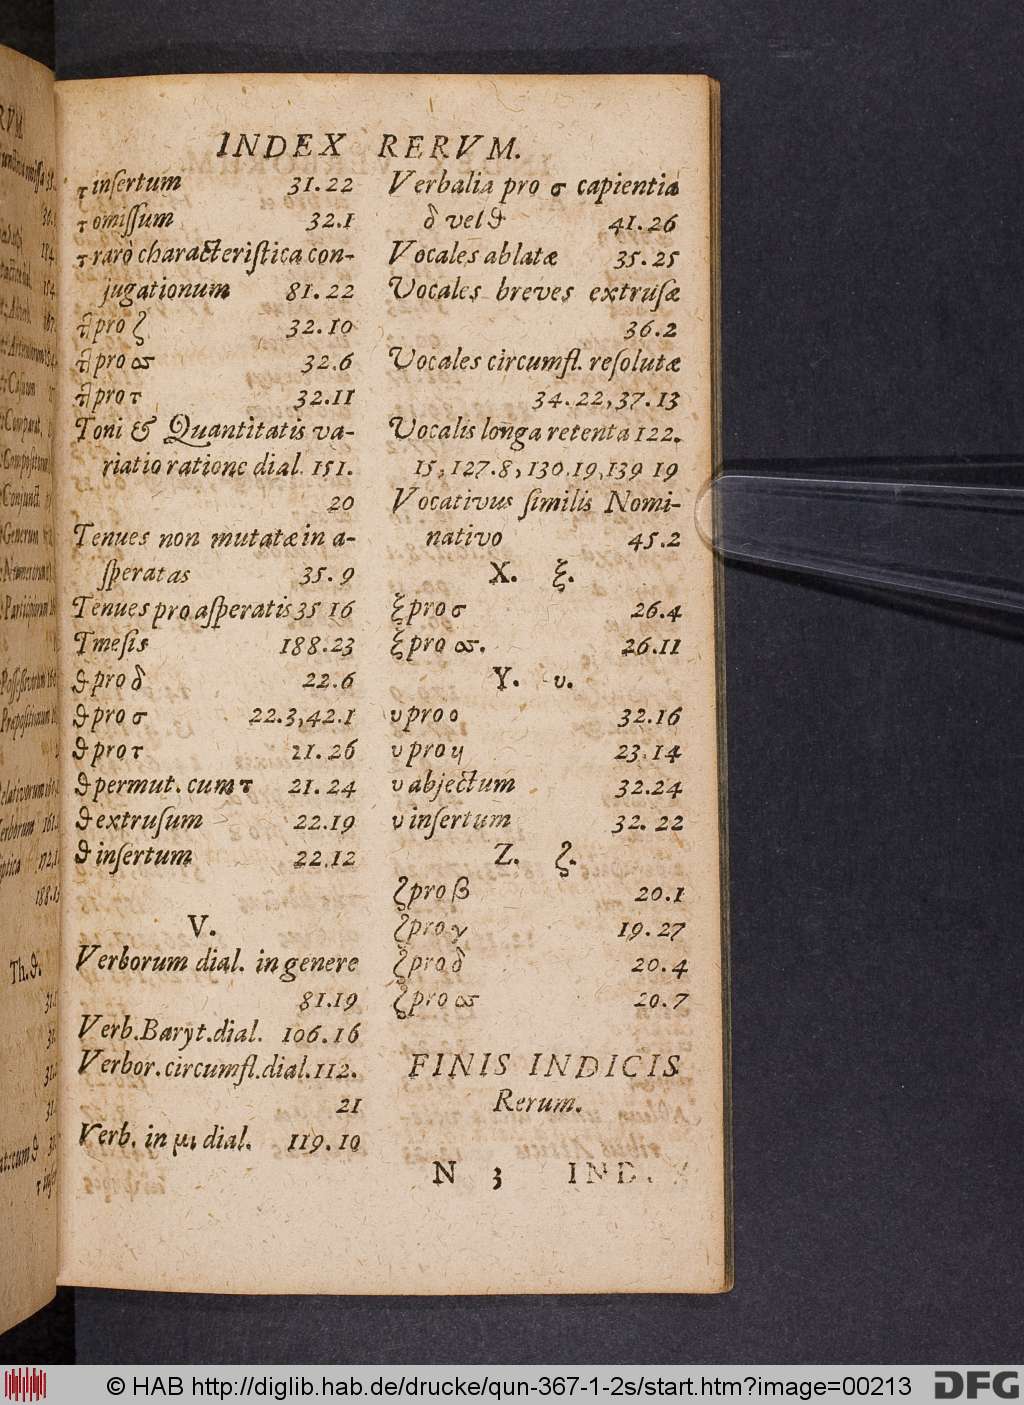 INDEX RERVM.
τ inſertum 31.22
τ omiſſum 32.1
τ rarò characteriſtica con-
jugationum 81.22
pro ζ 32.10
pro ϖ 32.6
pro τ 32.11
Toni & Quantitatis va-
riatio ratione dial. 151.
20
Tenues non mutatæ in a-
ſperatas 35.9
Tenues pro aſperatis 35 16
Tmeſis 188.23
ϑ pro δ 22.6
ϑ pro σ 22.3,42.1
ϑ pro τ 21.26
ϑ permut. cum τ 21.24
ϑ extruſum 22.19
ϑ inſertum 22.12
V.
Verborum dial. in genere
81.19
Verb. Baryt. dial. 106.16
Verbor. circumfl. dial. 112.
21
Verb. in μι dial. 119.10
Verbalia pro σ capientia
δ vel ϑ 41.26
Vocales ablatæ 35.25
Vocales breves extruſæ
36.2
Vocales circumfl. reſolutæ
34.22,37.13
Vocalis longa retenta 122.
15,127.8,130.19,139 19
Vocativus ſimilis Nomi-
nativo 45.2
X. ξ.
ξ pro σ 26.4
ξ pro ϖ. 26.11
Y. υ.
υ pro ο 32.16
υ pro η 23.14
υ abjectum 32.24
υ inſertum 32.22
Z. ζ.
ζ pro β 20.1
ζ pro γ 19.27
ζ pro δ 20.4
ζ pro ϖ 20.7
FINIS INDICIS
Rerum.
N 3 IND.
© HAB http://diglib.hab.de/drucke/qun-367-1-2s/start.htm?image=00213 DFG